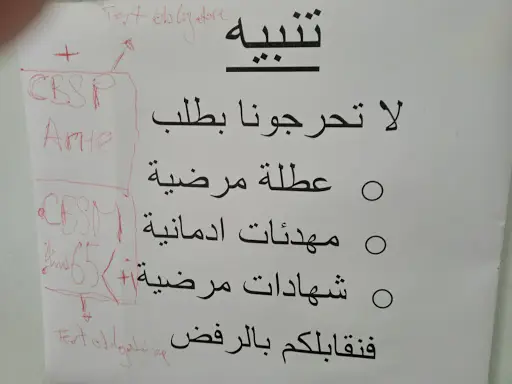 تنبيه
لا تحرجونا بطلب
عطلة مرضية
مهدئات ادمانية
شهادات مرضية
فنقابلكم بالرفض
Test obligatoire
+
CBSP
CBSM
65 <
Test